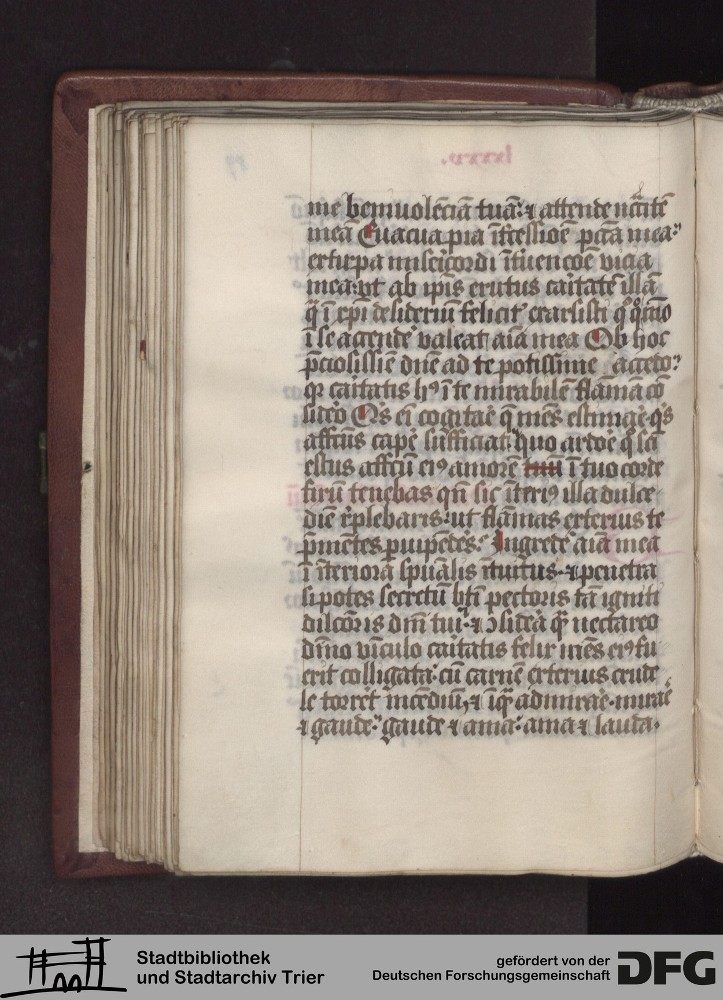 me beniuolēciā tuā: ⁊ attende nāitē
meā Euacua pia ītcessioē pctā mea:
extirpa misēicordi ītuencōē vicia
mea: vt ab ip̄is erutus caītatē illā
q̄ ī xp̄i desideriū felicit᾽ exarsisti
ī se accende᾽ valeat aīa mea Ob hoc
p̄ciosissiē dn̄e ad te potissime accedo:
qr caītatis hꝰ ī te mirabilē flāmā cō
sid᾽o Qͥs eī cogitaē q̄ mēs estimaē qͥs
affcūs cape᾽ sufficiat quo ardoē
estus affcū eiꝰ amorē tuū ī tuo corde
firū tenebas qn̄ sic īteriꝰ illa dulce
diē r̄plebaris: ut flāmas exterius te
p̄mētes Ingrede᾽ aīa mea
ī īteriora sp̄ualis ītuitus ⁊ penetra
si potes secretū bt̄i pectoris tā igniti
dilcōris dn̄i tui ⁊ ↄsid᾽a q̄ nectareo
dīno vīculo caītatis felix mēs eiꝰ fu
erit colligata: cū carnē exterius crude
le torret᾽ incēdiū, ⁊ admiraē. miraē
⁊ gaude: gaude ⁊ ama: ama ⁊ lauda.
lxxxv.
Stadtbibliothek
und Stadtarchiv Trier
gefördert von der
Deutschen Forschungsgemeinschaft
DFG